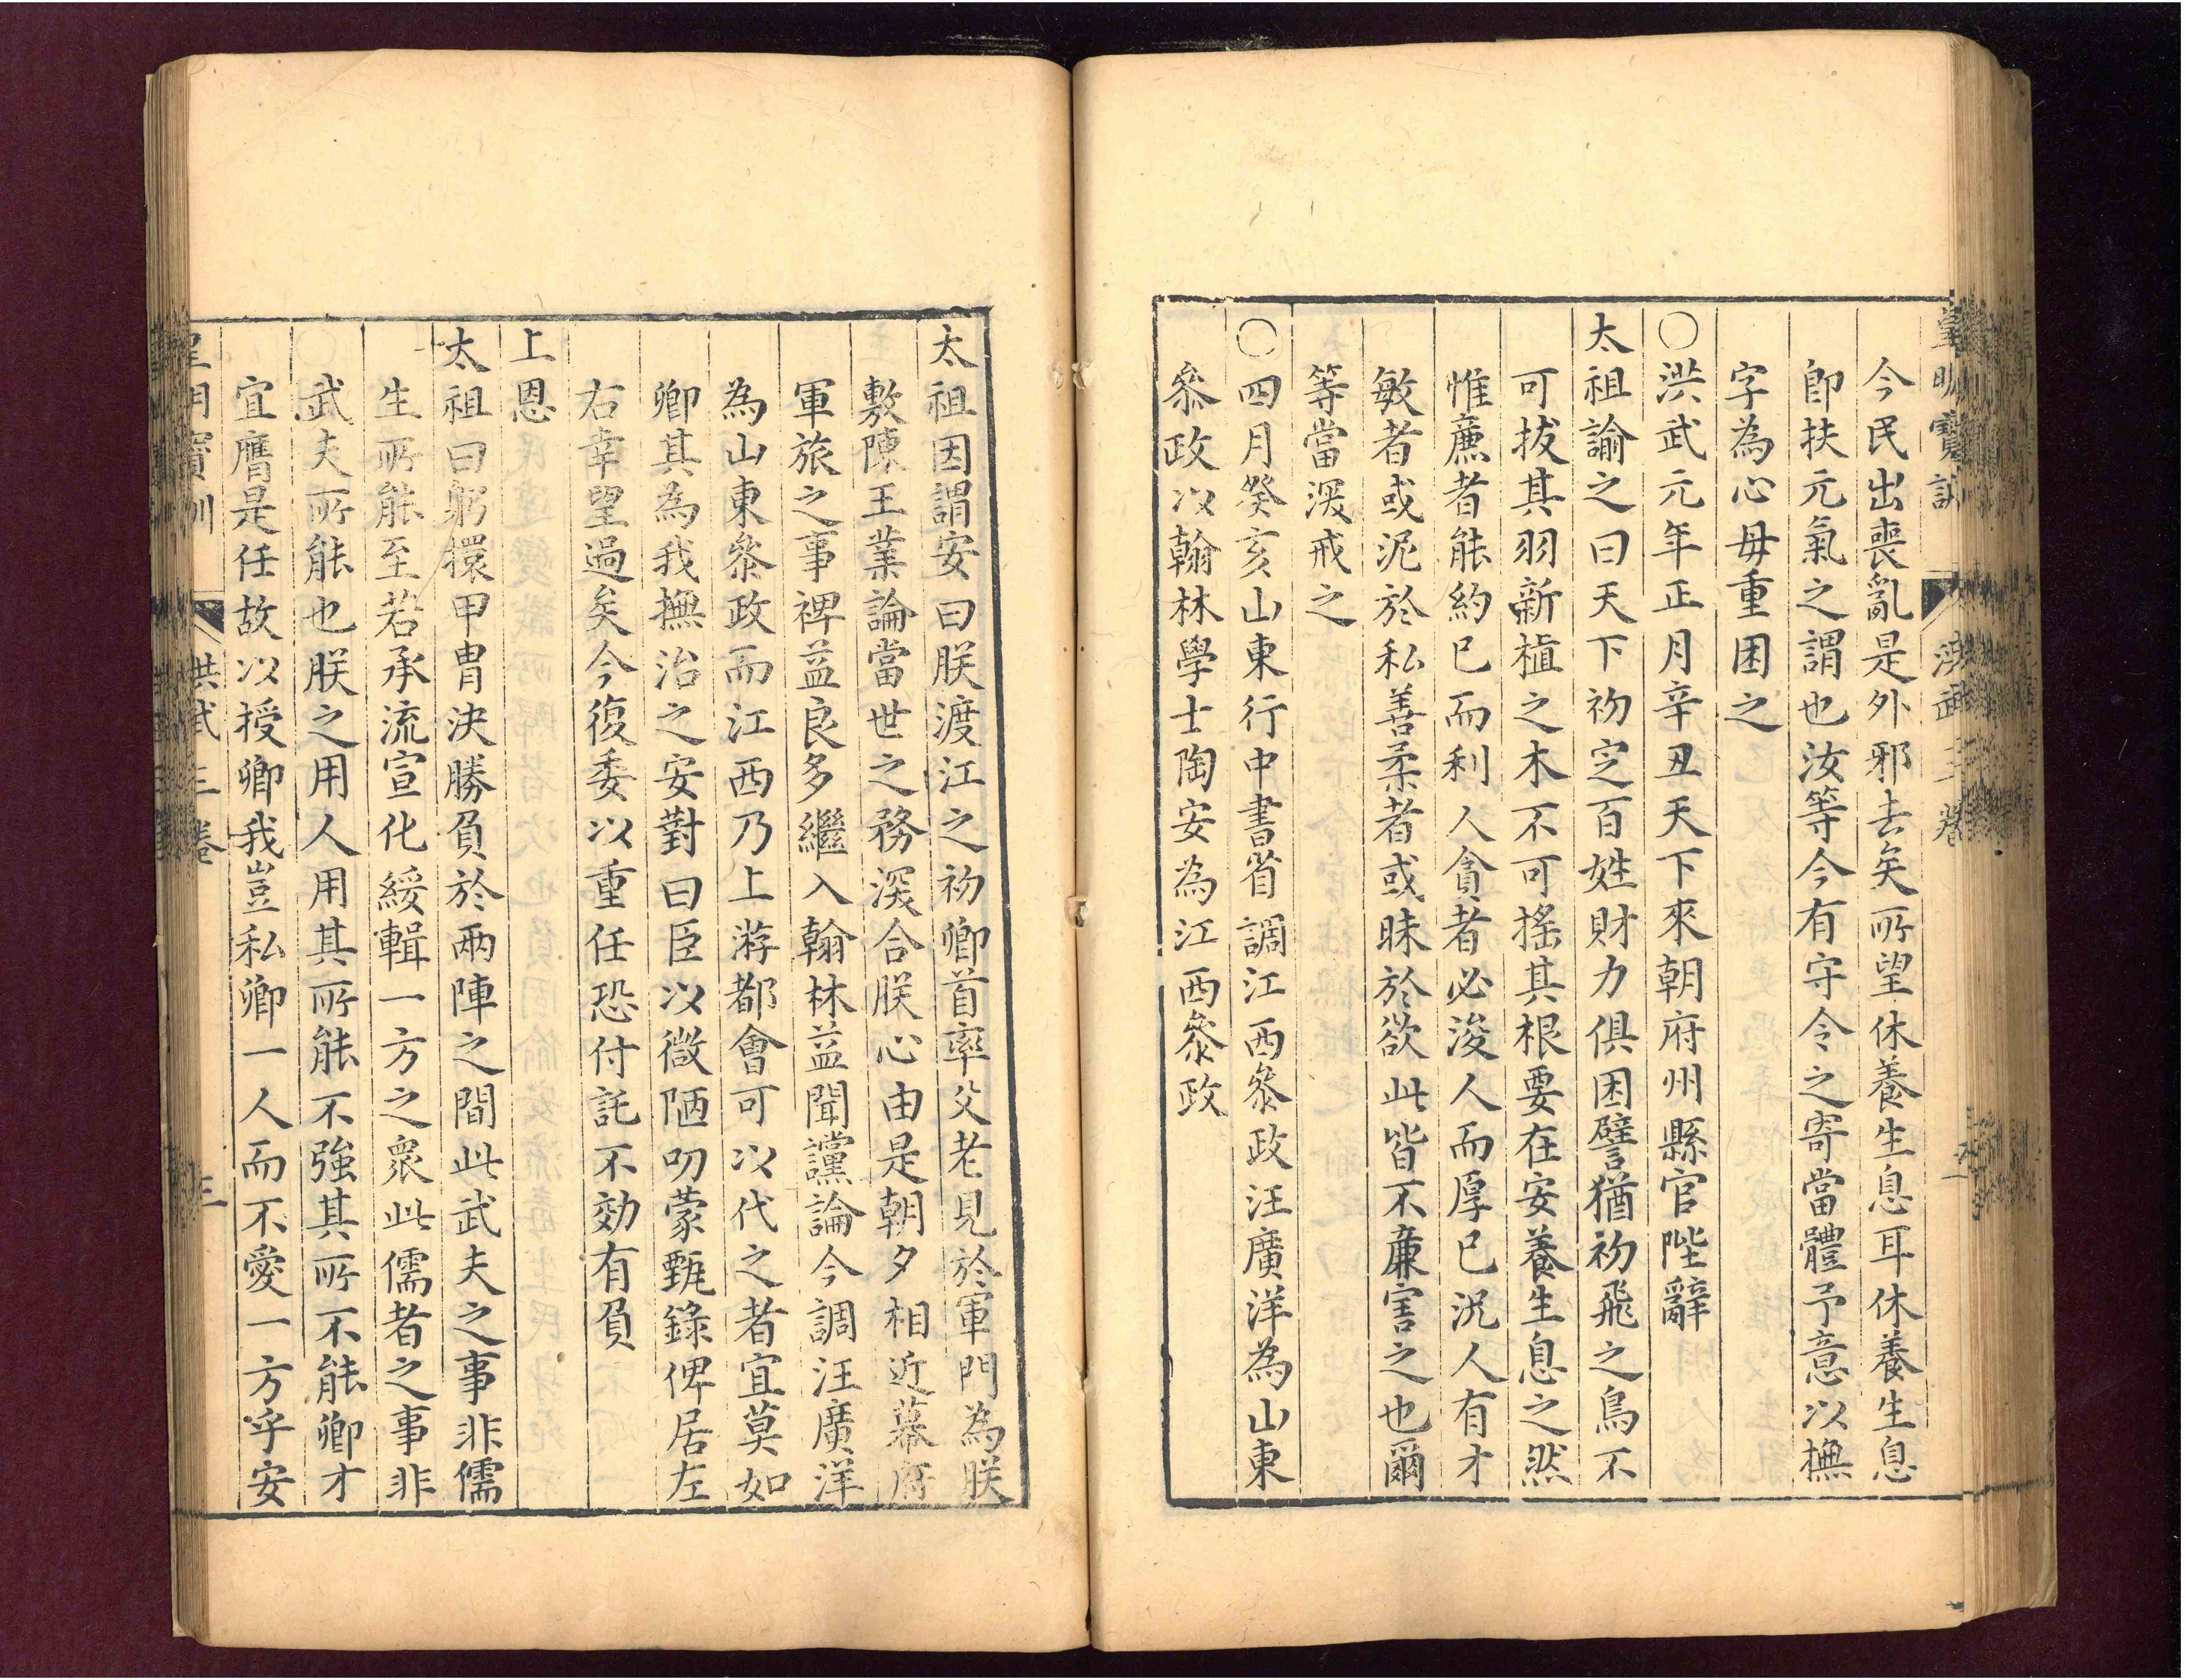 皇明寶訓 洪武三卷
今民出喪亂是外邪去矣所望休養生息耳休養生息
卽扶元氣之謂也汝等今有守令之寄當體予意以撫
字為心毋重困之
○洪武元年正月辛丑天下來朝府州縣官陛辭
太祖諭之曰天下初定百姓財力俱困譬猶初飛之鳥不
可拔其羽新植之木不可搖其根要在安養生息之然
惟廉者能約己而利人貪者必浚人而厚己況人有才
敏者或泥於私善柔者或昧於欲此皆不廉害之也爾
等當深戒之
○四月癸亥山東行中書省調江西參政汪廣洋為山東
參政以翰林學士陶安為江西參政
太祖因謂安曰朕渡江之初卿首率父老見於軍門為朕
敷陳王業論當世之務深合朕心由是朝夕相近幕府
軍旅之事裨益良多繼入翰林益聞讜論今調汪廣洋
為山東參政而江西乃上游都會可以代之者宜莫如
卿其為我撫治之安對曰臣以微陋叨蒙甄錄俾居左
右幸望過矣今復委以重任恐付託不効有負
上恩
太祖曰躬擐甲冑決勝負於兩陣之間此武夫之事非儒
生所能至若承流宣化綏輯一方之衆此儒者之事非
武夫所能也朕之用人用其所能不強其所不能卿才
宜膺是任故以授卿我豈私卿一人而不愛一方乎安
皇明寶訓 洪武三卷 三